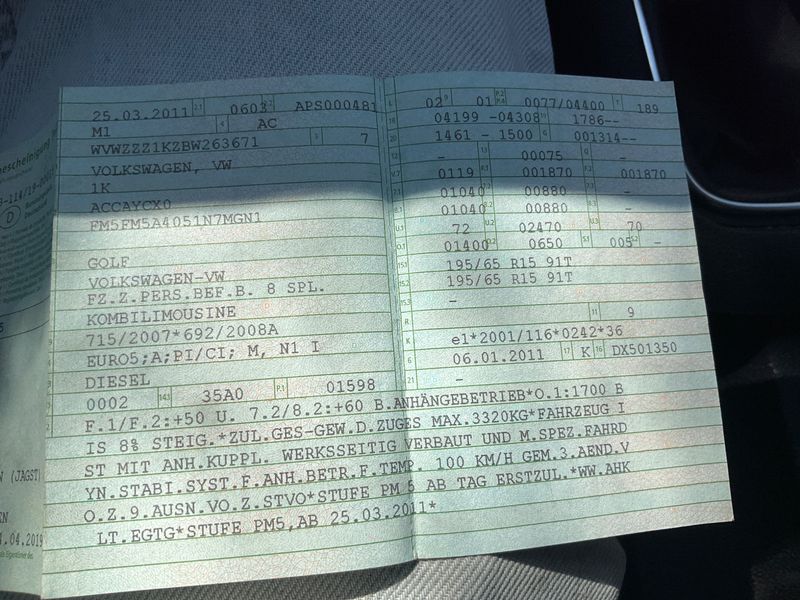 25.03.2011 2.1 0603 2.2 APS000481
M1 4 AC
WVWZZZ1KZBW263671 3 7
VOLKSWAGEN, VW
1K
ACCAYCX0
FM5FM5A4051N7MGN1
GOLF
VOLKSWAGEN-VW
FZ.Z.PERS.BEF.B. 8 SPL.
KOMBILIMOUSINE
715/2007*692/2008A
EURO5;A;PI/CI; M, N1 I
DIESEL
0002 14.1 35A0 P.1 01598
L 02 9 01 P.2 P.4 0077/04400 T 189
18 04199 -04308 19 1786--
20 1461 - 1500 G 001314--
12 - 13 00075 Q -
V.7 0119 F.1 001870 F.2 001870
7.1 01040 7.2 00880 -
8.1 01040 8.2 00880 -
U.1 72 U.2 02470 U.3 70
O.1 01400 O.2 0650 S.1 005 S.2 -
15.1 195/65 R15 91T
15.2 195/65 R15 91T
15.3 -
R 11 9
K e1*2001/116*0242*36
6 06.01.2011 17 K 16 DX501350
21 -
F.1/F.2:+50 U. 7.2/8.2:+60 B.ANHÄNGEBETRIEB*O.1:1700 B
IS 8% STEIG.*ZUL.GES-GEW.D.ZUGES MAX.3320KG*FAHRZEUG I
ST MIT ANH.KUPPL. WERKSSEITIG VERBAUT UND M.SPEZ.FAHRD
YN.STABI.SYST.F.ANH.BETR.F.TEMP. 100 KM/H GEM.3.AEND.V
O.Z.9.AUSN.VO.Z.STVO*STUFE PM 5 AB TAG ERSTZUL.*WW.AHK
LT.EGTG*STUFE PM5,AB 25.03.2011*
(JAGST)
.04.2019